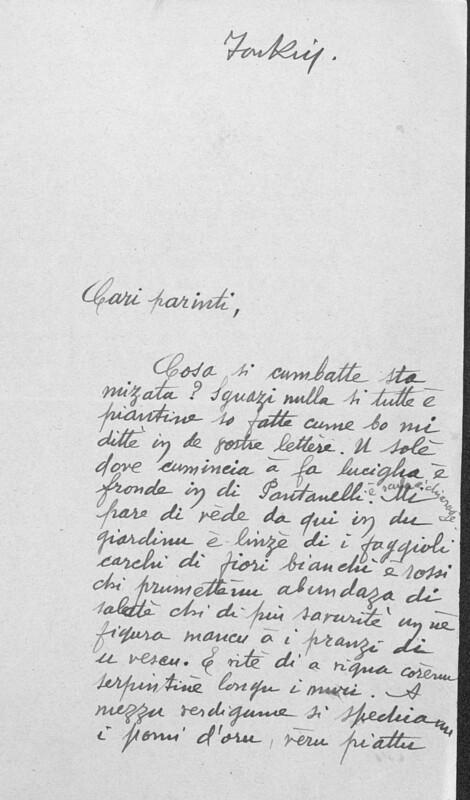 Tonkin.
Cari parinti,
Cosa si cumbatte sta
mizata? Sguazi nulla si tutte è
piantine so fatte cume bo mi
dittè in de vostre lettère. U solè
dove cumincia à fa luciglia è
fronde in di Pantanelli. è Mi
pare di vède da qui in du
giardinu è linzè di i faggioli
carchi di fiori bianchi è rossi
chi prumettènu abundaza di
salatè chi di piu savuritè un ne
figura mancu à i pranzi di
u vescu. E vitè di a vigna corènu
serpentinè longu i muri. A
mezzu verdigume si spechianu
i pomi d'oru, vèru piattu